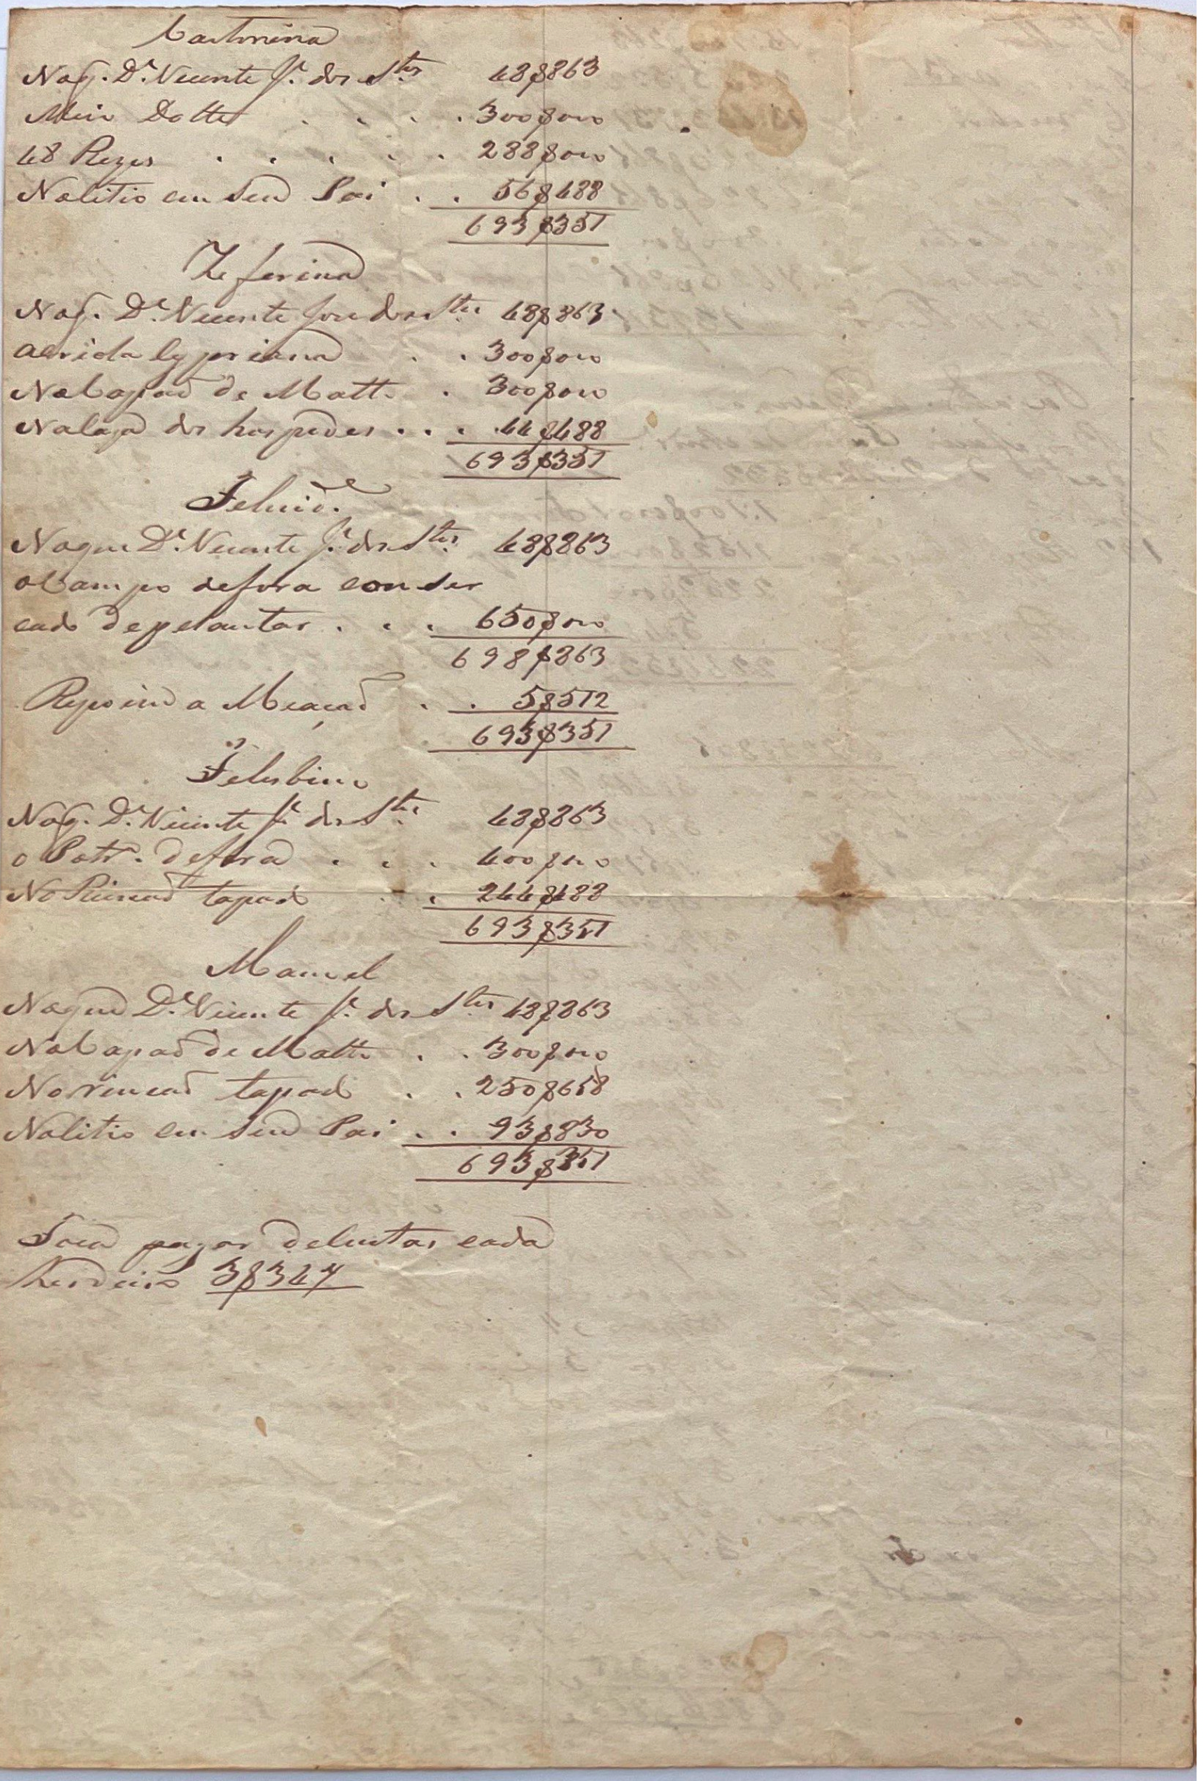 Cactorina
Na q. Dr. Vicente Je. dos Stos 48$863
Meio Dotte . . . . 300$000
48 Rezes . . . . . 288$000
No Citio em Seu Pai . . 56$488
693$351
Zeferina
Na q. Dr. Vicente Jose dos Stos 48$863
a crida Cypriana . . 300$000
No Capao de Matt. . 300$000
Na caza dos hospedes . . . 44$488
693$351
Felicid.e
Na que Dr. Vicente Je. dos Stos 48$863
o Campo de fora com ser
cado de pelantar . . . 650$000
698$863
Repoem a Meaçao . . 5$512
693$351
Felisbino
Na q. Dr. Vicente Je. dos Stos 48$863
o Potr.o de fora . . . 400$000
No Rincao tapado . . 244$488
693$351
Manoel
Na que Dr. Vicente Je. dos Stos 48$863
No Capao de Matt. . . 300$000
No rincao tapado . . 250$658
No Citio em Seu Pai . . 93$830
693$351
Toca pagar de Custas cada
herdeiro 3$347